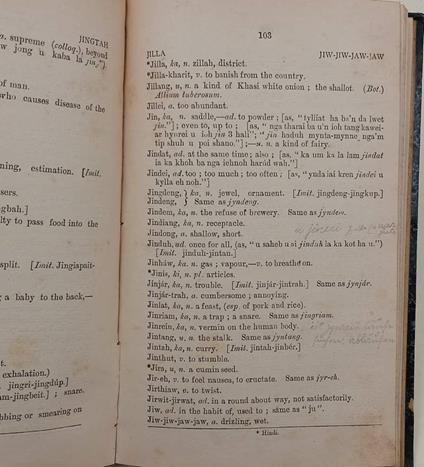 JINGTAH
a. supreme (colloq.), beyond
w jong u kaba la jin
of man.
who causes disease of the
ning, estimation. [Imit.
sers.
gbah.]
lty to pass food into the
split. [Imit. Jingiapait-
g a baby to the back,—
t.
exhalation.)
jingri-jingdúp.]
am-jingbeit.] ; snare.
bbing or smearing on
103
JILLA JIW-JIW-JAW-JAW
*Jilla, ka, n. zillah, district.
*Jilla-kharit, v. to banish from the country.
Jillang, u, n. a kind of Khasi white onion ; the shallot. (Bot.)
Allium tuberosum.
Jillei, a. too abundant.
Jin, ka, n. saddle,—ad. to powder ; [as, "tylliat ha ba'n da lwet
jin."] ; even to, up to ; [as, "nga tharai ba u'n ioh tang kawei-
ar hynrei u ioh jin 3 hali" ; "jin haduh mynta-mynne nga'm
tip shuh u poi shano."] ;—u. n. a kind of fairy.
Jindat, ad. at the same time ; also ; [as, "ka um ka la lam jindat
ia ka khoh ba nga iehnoh haród wah."]
Jindei, ad. too ; too much ; too often ; [as, "ynda iai kren jindei u
kylla eh noh."]
Jingdeng, } ka, n. jewel, ornament. [Imit. jingdeng-jingkup.]
Jindeng, } Same as jyndeng.
Jindem, ka, n. the refuse of brewery. Same as jyndem.
Jindiang, ka, n. receptacle.
Jindong, a. shallow, short.
Jinduh, ad. once for all, (as, "u saheb u ai jinduh la ka kot ha u.")
[Imit. jinduh-jintan.]
Jinháw, ka, n. gas ; vapour,—v. to breathe on.
*Jinis, ki, n. pl. articles.
Jinjár, ka, n. trouble. [Imit. jinjár-jintrah.] Same as jynjár.
Jinjár-trah, a. cumbersome ; annoying.
Jinlat, ka, n. a feast, (esp. of pork and rice).
Jinriam, ka, n. a trap ; a snare. Same as jingriam.
Jinrein, ka, n. vermin on the human body.
Jintang, u, n. the stalk. Same as jyntang.
Jintah, ka, n. curry. [Imit. jintah-jinhér.]
Jinthut, v. to stumble.
*Jira, u, n. a cumin seed.
Jir-eh, v. to feel nausea, to eructate. Same as jyr-eh.
Jirthiaw, v. to twist.
Jirwit-jirwat, ad. in a round about way, not satisfactorily.
Jiw, ad. in the habit of, used to ; same as "ju".
Jiw-jiw-jaw-jaw, a. drizling, wet.
* Hindi.